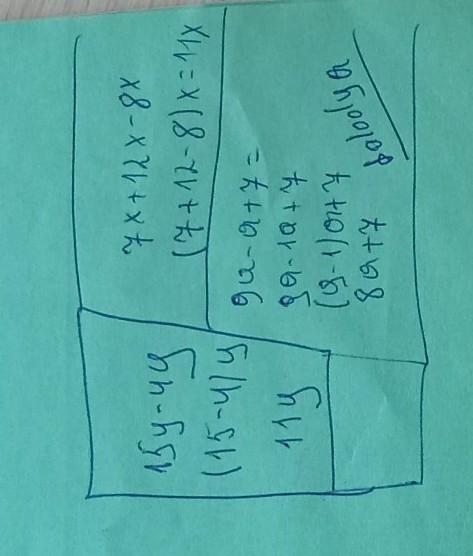 15y-4y
(15-4)y
11y
7x+12x-8x
(7+12-8)x=11x
9a-a+7=
9a-1a+7
(9-1)a+7
8a+7